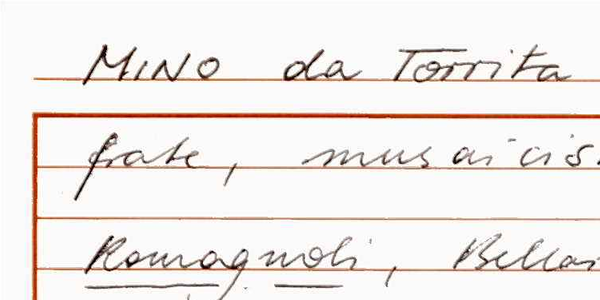 MINO da Torrita
frate, musaicis
Romagnoli, Bellar